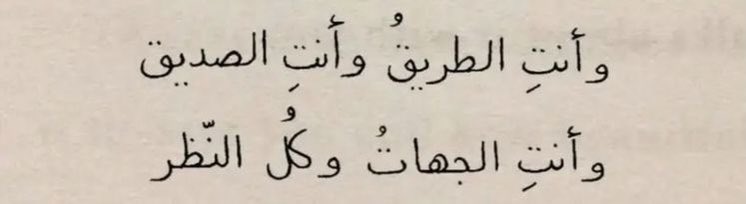 وأنتِ الطريقُ وأنتِ الصديق
وأنتِ الجهاتُ وكُل النّظر